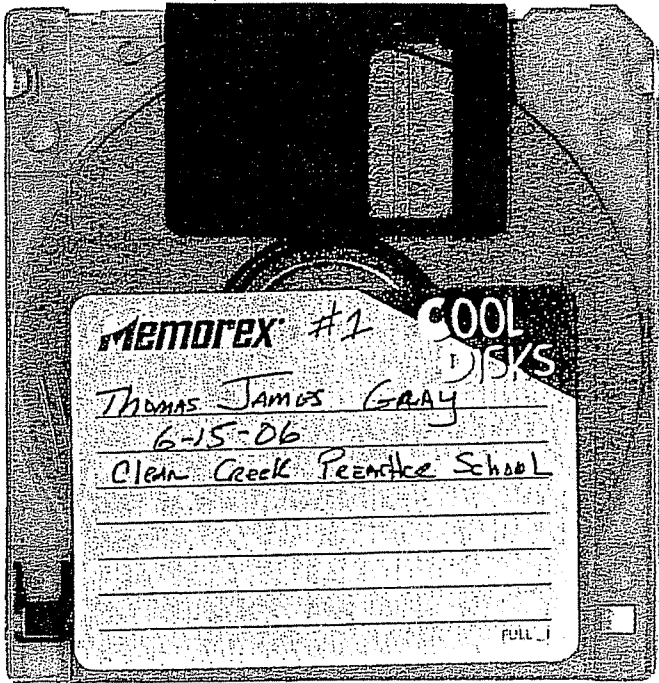 Memorex #1 COOL DISKS
Thomas James Gray
6-15-06
Clear Creek Preacher School